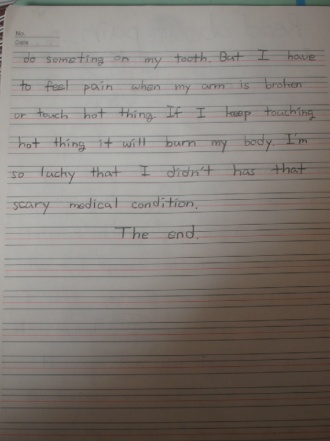 No.
Date
do someting on my tooth. But I have
to feel pain when my arm is broken
or touch hot thing. If I keep touching
hot thing it will burn my body. I'm
so lucky that I didn't has that
scary medical condition.
The end.